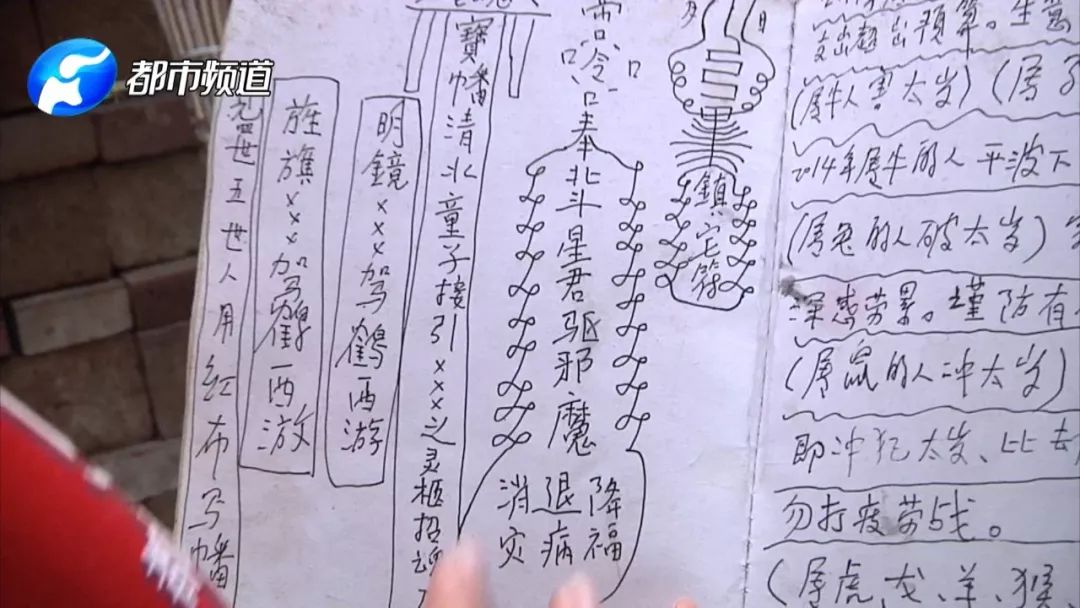 都市频道
寶幡清水童子接引×××之灵柩招魂
明鏡×××驾鶴西游
旌旗×××驾鶴西游
五世人用红布写幡
奉北斗星君驱邪魔
消灾
退病
降福
鎮宅符
支出超出预算。生意
(属牛人害太岁)(属
2014年属牛的人平波下
(属兔的人破太岁)
深感劳累。谨防有
(属鼠的人冲太岁)
即冲犯太岁、比去
勿打疲劳战。
(属虎、犬、羊、猴、